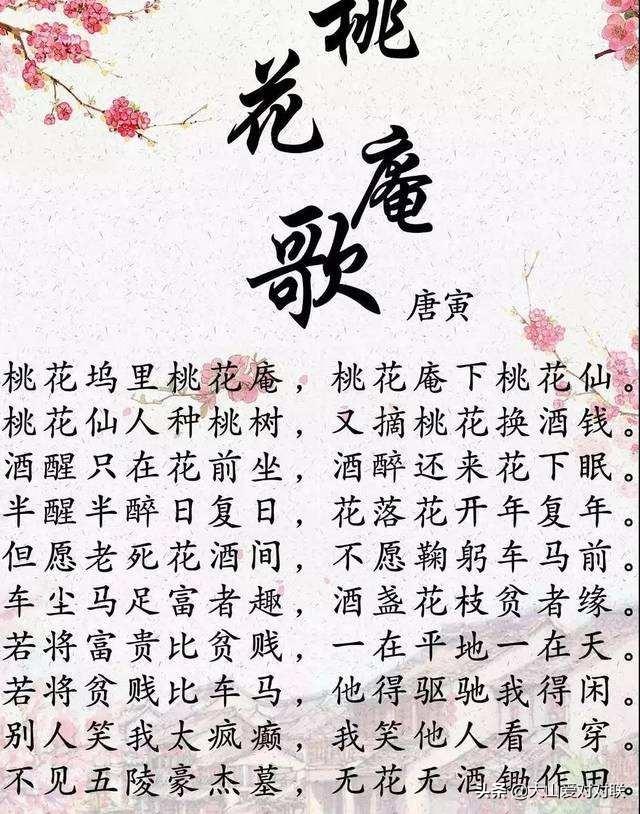 桃花庵歌
唐寅
桃花坞里桃花庵，桃花庵下桃花仙。
桃花仙人种桃树，又摘桃花换酒钱。
酒醒只在花前坐，酒醉还来花下眠。
半醒半醉日复日，花落花开年复年。
但愿老死花酒间，不愿鞠躬车马前。
车尘马足富者趣，酒盏花枝贫者缘。
若将富贵比贫贱，一在平地一在天。
若将贫贱比车马，他得驱驰我得闲。
别人笑我太疯癫，我笑他人看不穿。
不见五陵豪杰墓，无花无酒锄作田。
头条@大山爱对对联